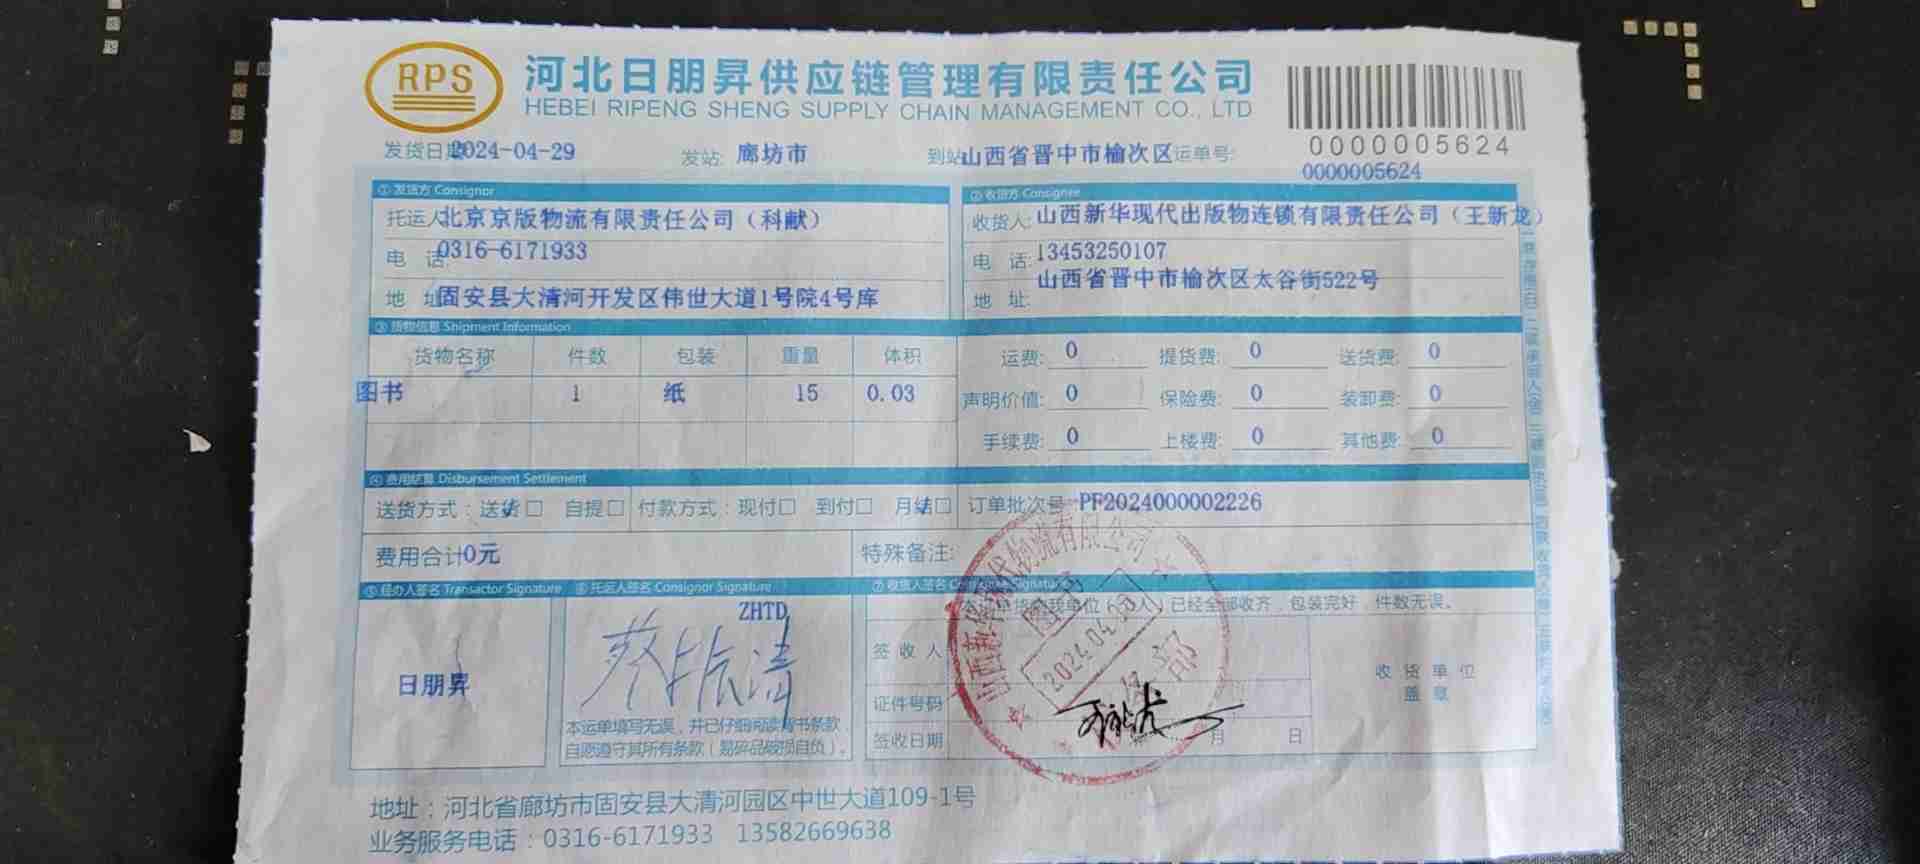 RPS
河北日朋昇供应链管理有限责任公司
HEBEI RIPENG SHENG SUPPLY CHAIN MANAGEMENT CO., LTD
0000005624
发货日期2024-04-29 发站: 廊坊市 到站山西省晋中市榆次区运单号:
0000005624
①发货方 Consignor ②收货方 Consignee
托运人北京京版物流有限责任公司（科献） 收货人: 山西新华现代出版物连锁有限责任公司（王新龙）
电 话:0316-6171933 电 话:13453250107
地 址固安县大清河开发区伟世大道1号院4号库 地 址: 山西省晋中市榆次区太谷街522号
③货物信息 Shipment Information
货物名称 件数 包装 重量 体积 运费: 0 提货费: 0 送货费: 0
图书 1 纸 15 0.03 声明价值: 0 保险费: 0 装卸费: 0
手续费: 0 上楼费: 0 其他费: 0
④费用结算 Disbursement Settlement
送货方式：送货□ 自提□ 付款方式：现付□ 到付□ 月结□ 订单批次号 PF2024000002226
费用合计0元 特殊备注:
⑤经办人签名 Transactor Signature ⑥托运人签名 Consignor Signature ⑦收货人签名 Consignee Signature
ZHTD
已经全部收齐，包装完好，件数无误。
日朋昇
签收人
收货单位
盖章
证件号码
签收日期 月 日
2024.04.30
本运单填写无误，并已仔细阅读背书条款
自愿遵守其所有条款（易碎品破损自负）。
地址：河北省廊坊市固安县大清河园区中世大道109-1号
业务服务电话：0316-6171933 13582669638